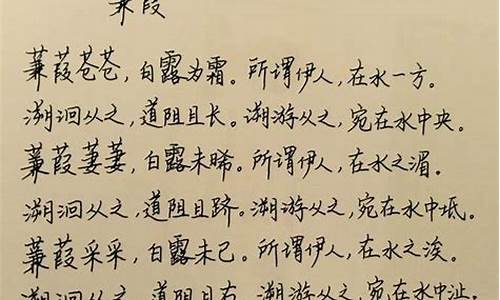 蒹葭
蒹葭苍苍，白露为霜。所谓伊人，在水一方。
溯洄从之，道阻且长。溯游从之，宛在水中央。
蒹葭萋萋，白露未晞。所谓伊人，在水之湄。
溯洄从之，道阻且跻。溯游从之，宛在水中坻。
蒹葭采采，白露未已。所谓伊人，在水之涘。
溯洄从之，道阻且右。溯游从之，宛在水中沚。